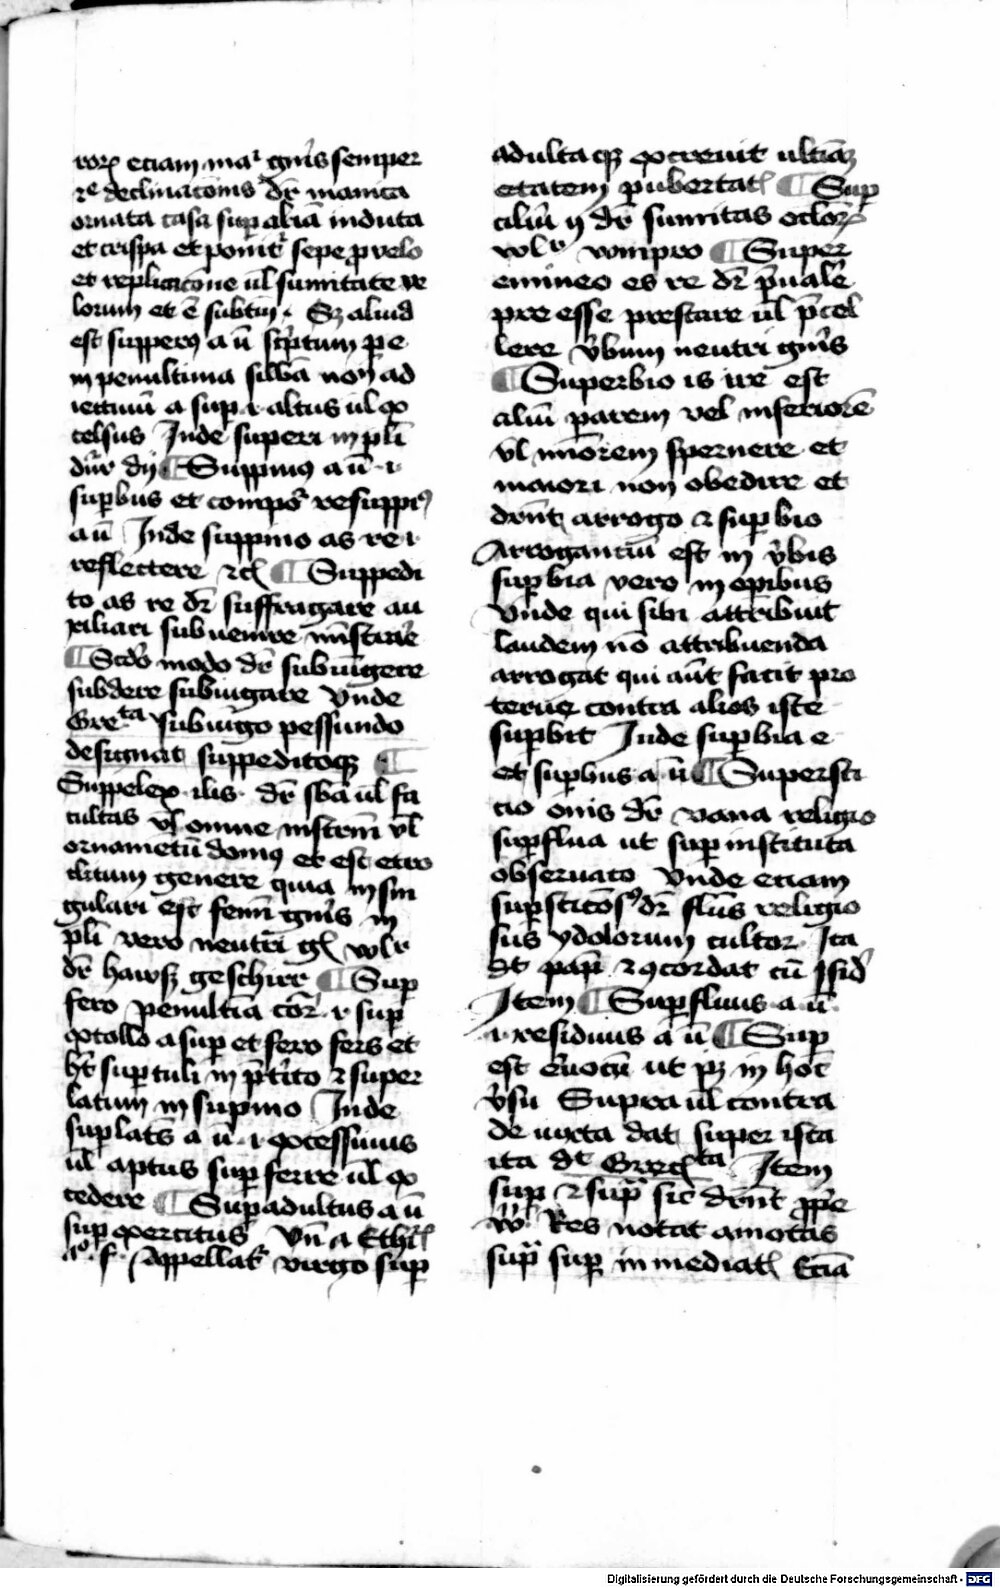 roꝝ etiam maͬ gn̄is semper
re declinacōnis dr̄ manica
ornata casa suꝑ aliā induta
et crispa et ponit᷑ sepe ꝓ velo
et replicacōne ul̄ sum̄itate ve
lorum et ē subtū. Sꝫ aliud
est supperꝯ a ū scͥptum ꝑ e
in penultima silba non ad
iectiuū a suꝑ .i. altus ul̄ ex
celsus Inde superi in pli
dn̄r dij ¶ Suppinꝯ a ū .i.
suꝑbus et compoͬ resuppinꝯ
a ū Inde suppino as re .i.
reflectere ⁊cꝭ ¶ Suppedi
to as re dr̄ suffragare au
xiliari subuenire mīstrar̄e
¶ Scd̄o modo dr̄ subiūgere
subdere subiugare Vnde
Grecͭᵃ Subiūgo pessundo
designat suppeditoqꝫ ¶
Suppelex ilis dr̄ sb̄a ul̄ fa
cultas vl̄ omne instrm̄ vl̄
ornametū domꝯ et est etro
clitum genere quia in sin
gulari est femī gn̄is in
pli vero neutri gꝭ wlr
dr̄ hawsꝫ geschirr ¶ Suꝑ
fero penultīa cor̄ .i. suꝑ
extollo a suꝑ et fero fers et
hꝫ suꝑtuli in p̄tīto ⁊ super
latum in supino Inde
suꝑlatꝰ a ū .i. excessiuus
ul̄ aptus suꝑferre ul̄ ex
cedere ¶ Suꝑadultus a ū
suꝑexercitus Vn̄ a Ethiꝭ
aͦ. f. Appellat᷑ virgo suꝑ
adultaqꝫ excreuit ultīaꝫ
etatem pubertatꝭ ¶ Suꝑ
ciliū ij dr̄ sum̄itas oclōꝝ
wlͦ winpro ¶ Super
emineo es re dr̄ p̄ualē
pre esse prestare ul̄ p̄cel
lere v̄bum neutri gn̄is
¶ Superbio is ire est
aliū parem vel inferiorē
vl̄ minōrem spernere et
maiori non obedire et
drn̄t arrogo ⁊ suꝑbio
Arroganciū est in v̄bis
suꝑbia vero in opībus
Vnde qui sibi attribuit
laudem nō attribuenda
arrogat qui aūt facit pro
terue contra alios iste
suꝑbit Inde suꝑbia e
et suꝑbus a ū ¶ Supersti
cio onis dr̄ vana religio
suꝑflua ut suꝑ instituta
obseruato Vnde etiam
suꝑsticōsꝯ dr̄ fl̄us religio
sus ydolorum cultor Ita
dt papī ⁊ ꝯcordat cū Isid̄
Item ¶ Suꝑfluus a ū
.i. residuus a ū ¶ Suꝑ
est eq̄uocū ut pꝫ in hoc
v̄su Supra ul̄ contra
de iuxta dat super ista
ita dt Grecͭᵃ Item
suꝑ ⁊ supͣ sic drn̄t ꝓpͥe
v̄ꝰ Res notat amotas
supͣ suꝑ inmediatꝭ Eciā
Digitalisierung gefördert durch die Deutsche Forschungsgemeinschaft - DFG